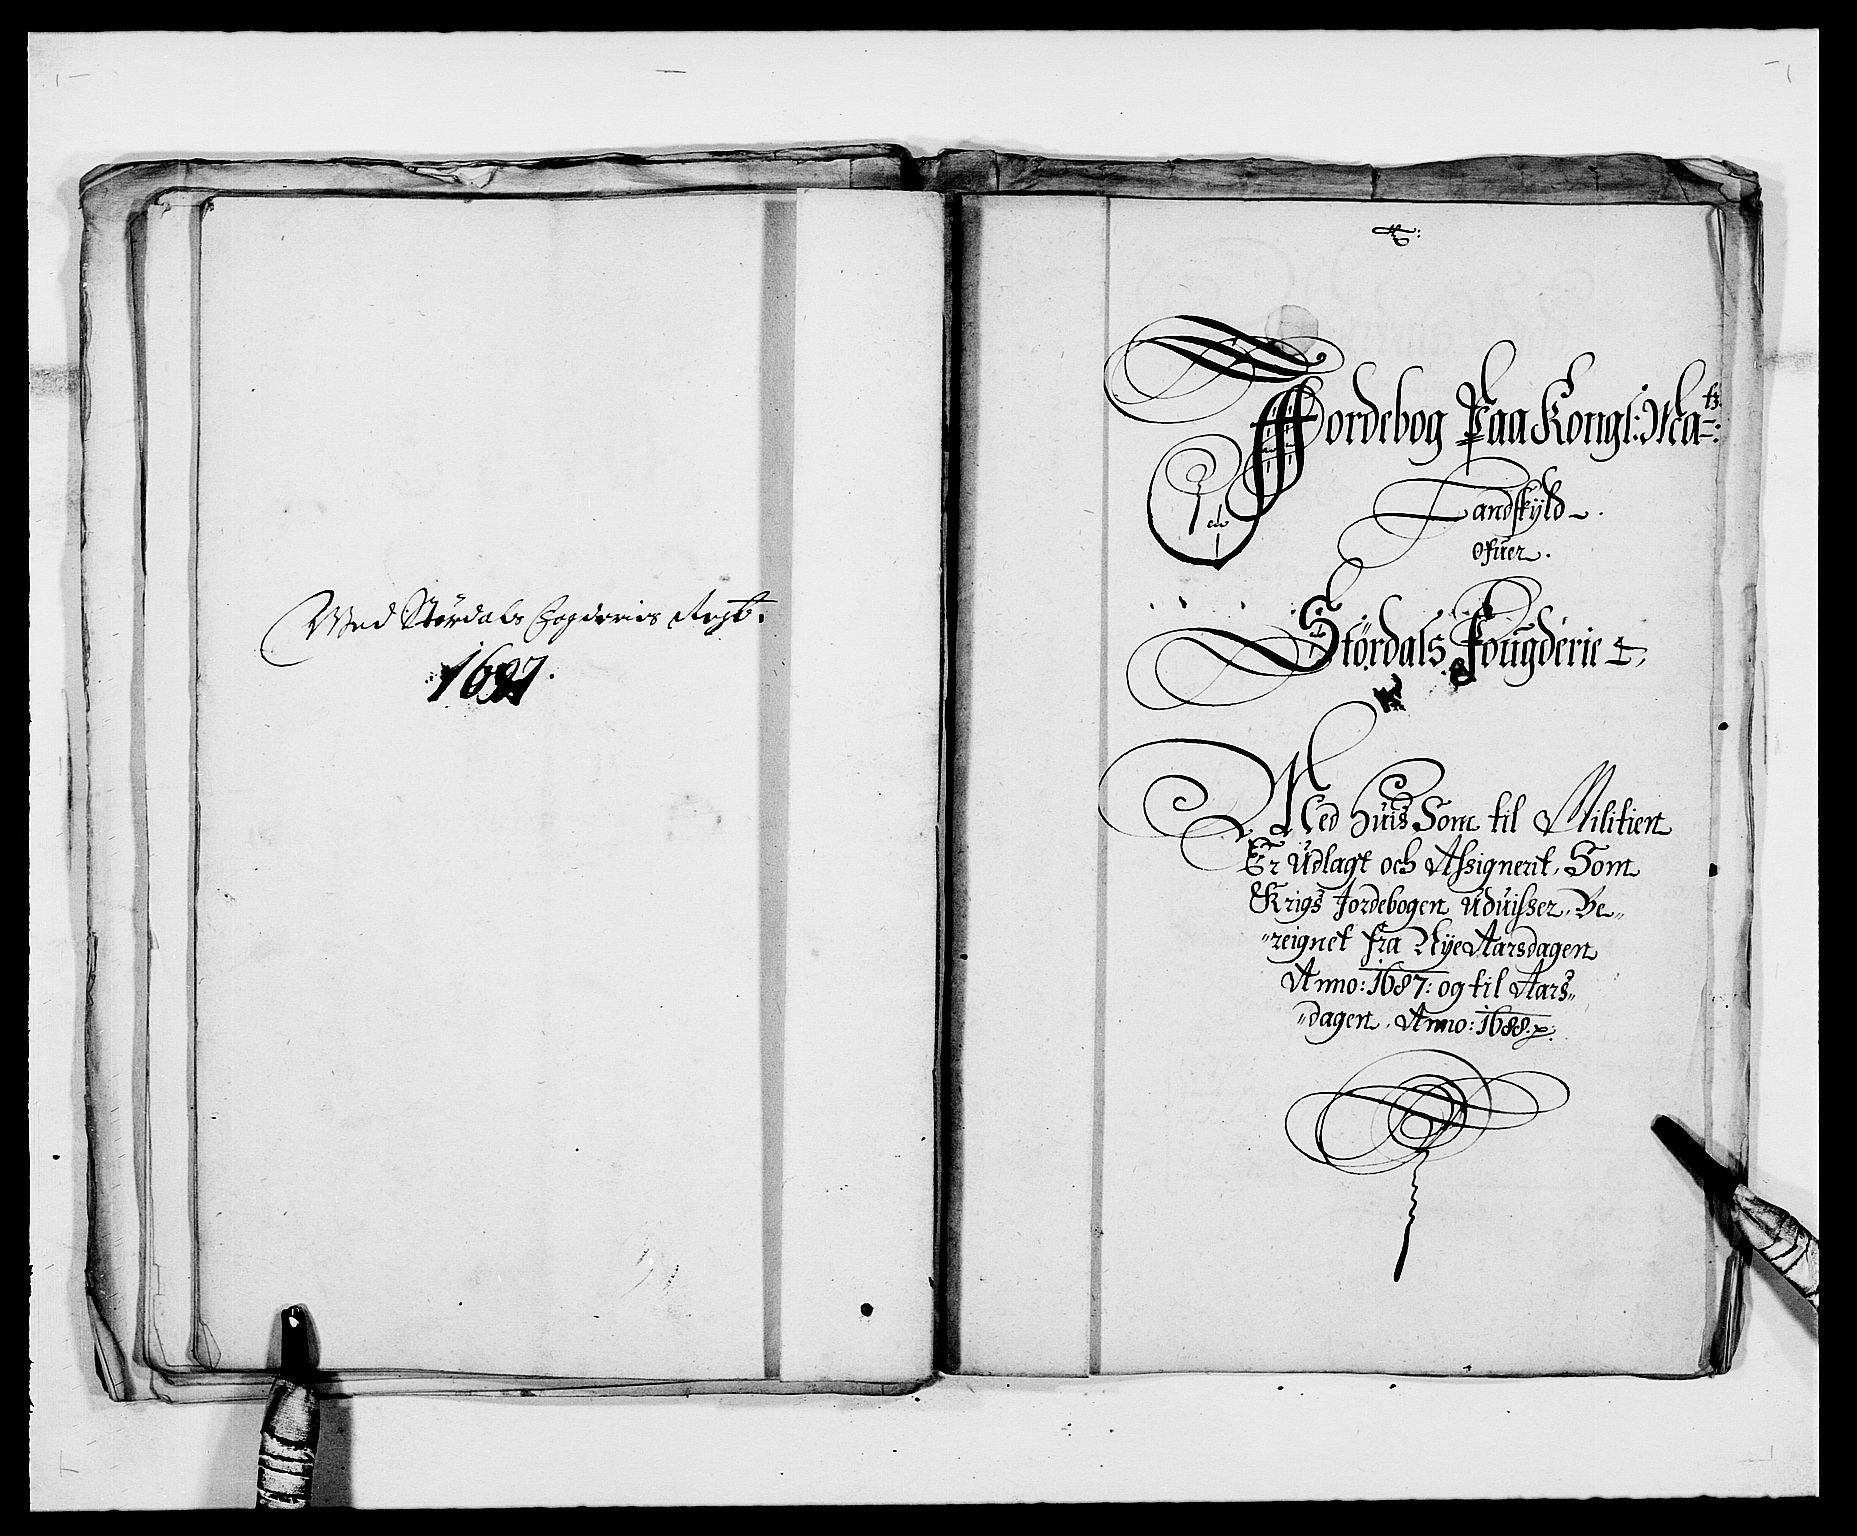 Wed Størdals Fogderies Regt.
1687.
Jordebog Paa Kongl: Maÿtz:
Landskÿld
ofuer.
Størdals Fougderie
Med huis Som til Militien
Er Udlagt och Assignerit, Som
Krigs Jordebogen Uduisser, Be„
„reignet fra Nÿe Aarsdagen
Anno: 1687: og til Aars„
„dagen, Anno: 1688. p: